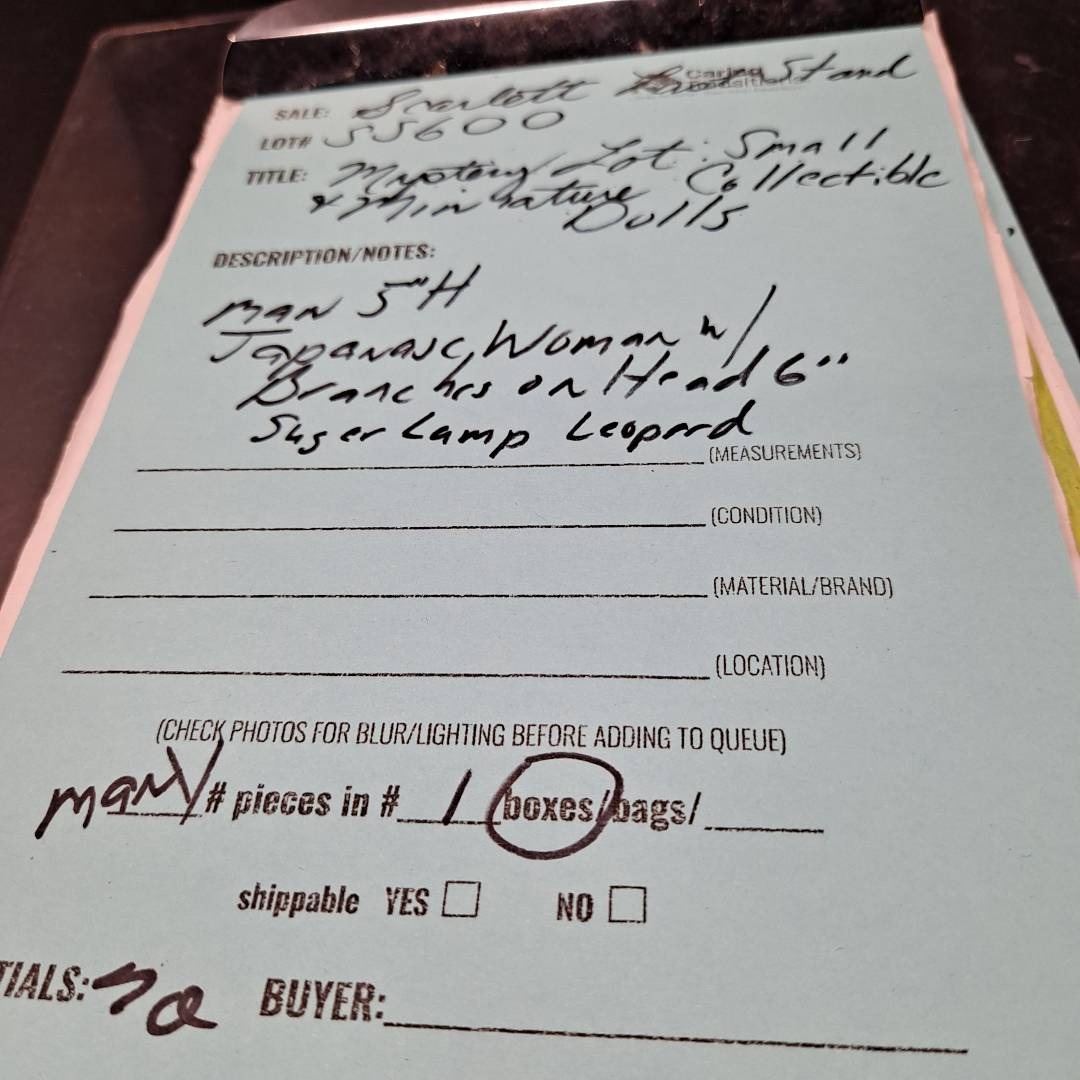 SALE: Scarlett Stand
Caring Transitions
LOT# SS600
TITLE: Mystery Lot: Small
& Minnature Collectible
Dolls
DESCRIPTION/NOTES:
MAN 5"H
Japanase, Woman w/
Branches on Head 6"
Suger Lamp Leopard
(MEASUREMENTS)
(CONDITION)
(MATERIAL/BRAND)
(LOCATION)
(CHECK PHOTOS FOR BLUR/LIGHTING BEFORE ADDING TO QUEUE)
many # pieces in # 1 boxes/bags/
shippable YES NO
TIALS: BUYER: